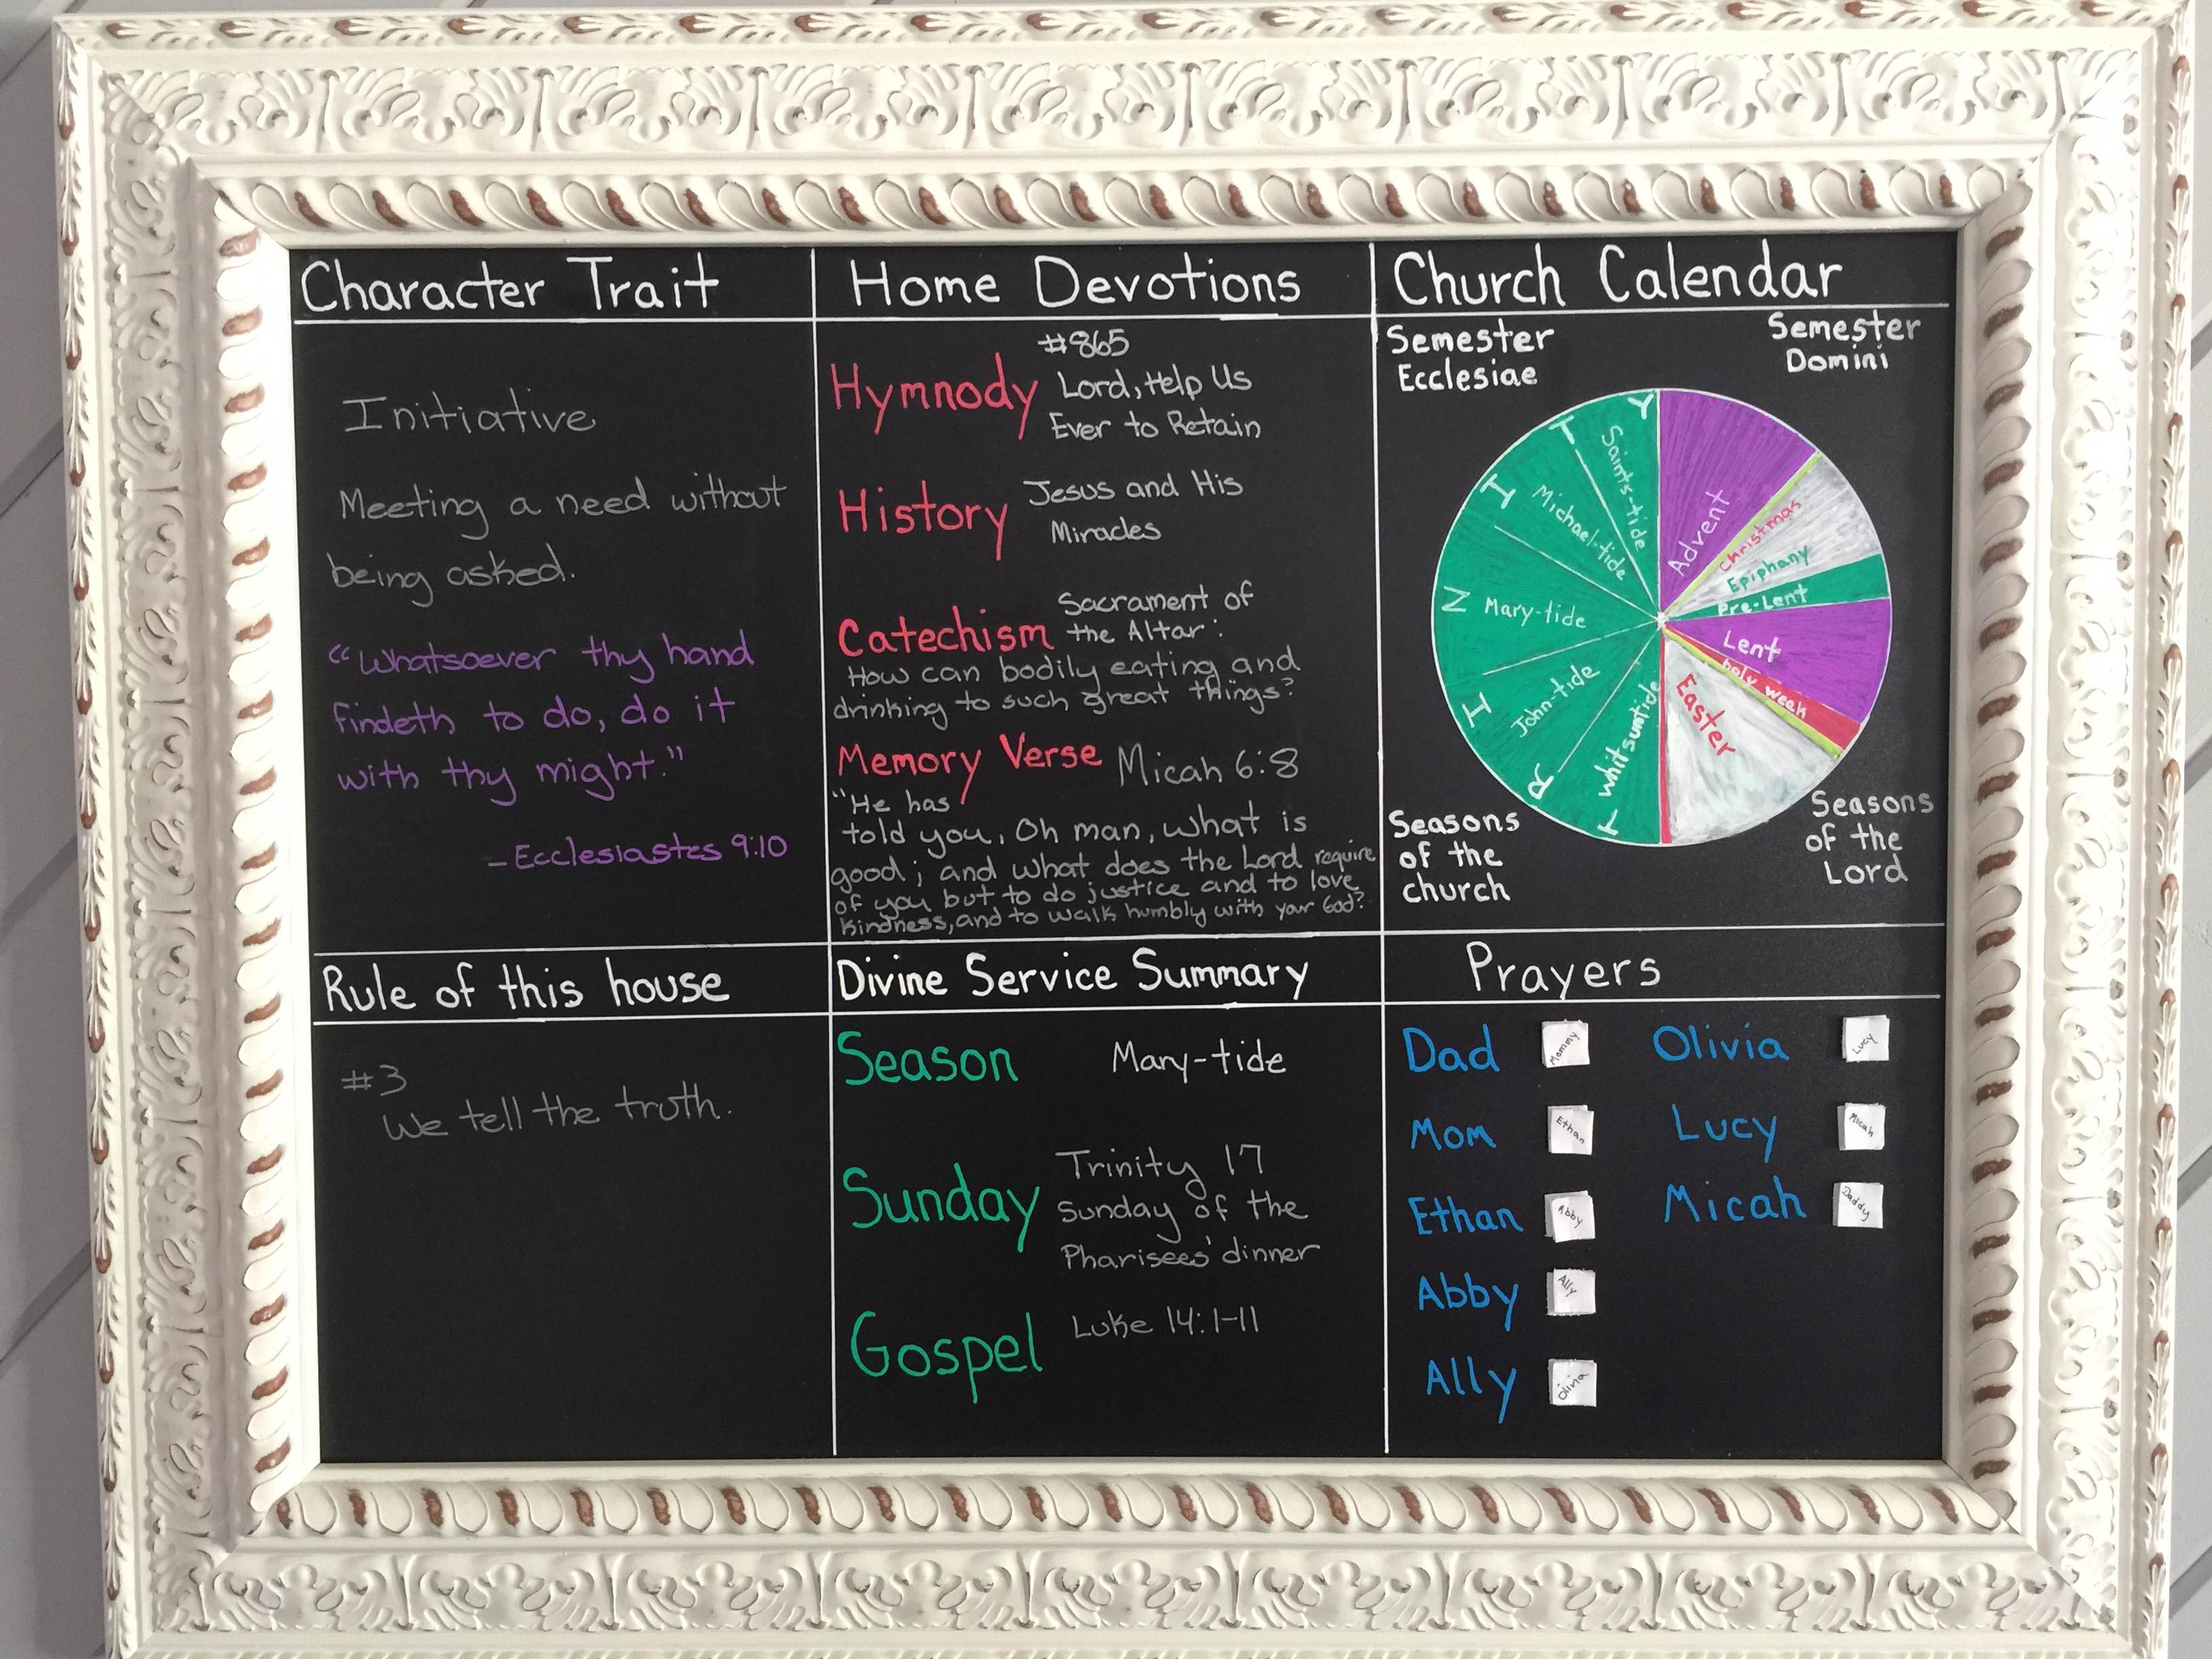 Character Trait
Initiative
Meeting a need without
being asked.
"Whatsoever thy hand
findeth to do, do it
with thy might."
-Ecclesiastes 9:10
Home Devotions
Hymnody #865
Lord, Help Us
Ever to Retain
History Jesus and His
Miracles
Catechism Sacrament of
the Altar:
How can bodily eating and
drinking to such great things?
Memory Verse Micah 6:8
"He has
told you, Oh man, what is
good; and what does the Lord require
of you but to do justice and to love
kindness, and to walk humbly with your God?
Church Calendar
Semester
Ecclesiae
Semester
Domini
Advent
Christmas
Epiphany
Pre-Lent
Lent
holy week
Easter
Whitsuntide
John-tide
Mary-tide
Michael-tide
Saints-tide
TRINITY
Seasons
of the
church
Seasons
of the
Lord
Rule of this house
#3
We tell the truth.
Divine Service Summary
Season Mary-tide
Sunday Trinity 17
Sunday of the
Pharisees' dinner
Gospel Luke 14:1-11
Prayers
Dad Mommy
Mom Ethan
Ethan Abby
Abby Ally
Ally Olivia
Olivia Lucy
Lucy Micah
Micah Daddy